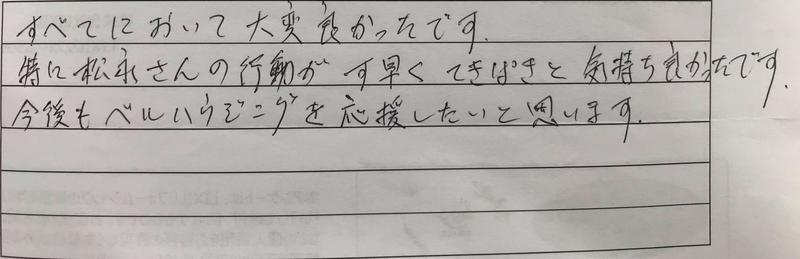 すべてにおいて大変良かったです。
特に松永さんの行動がす早くてきぱきと気持ち良かったです。
今後もベルハウジングを応援したいと思います。